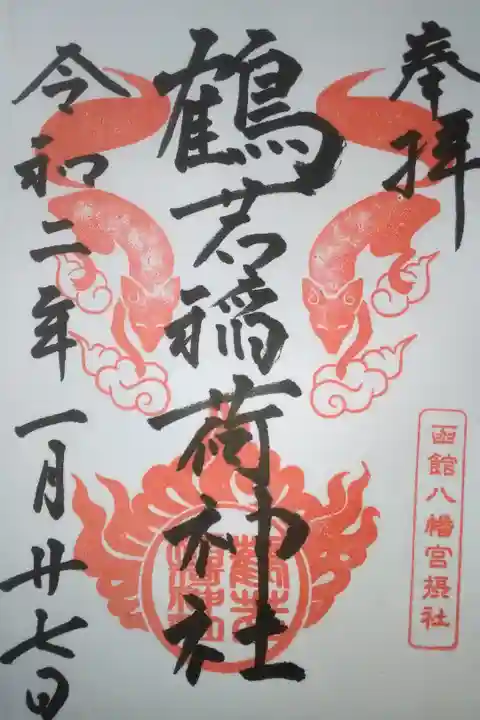 奉拝
函館八幡宮摂社
鶴若稲荷神社
令和二年一月廿七日